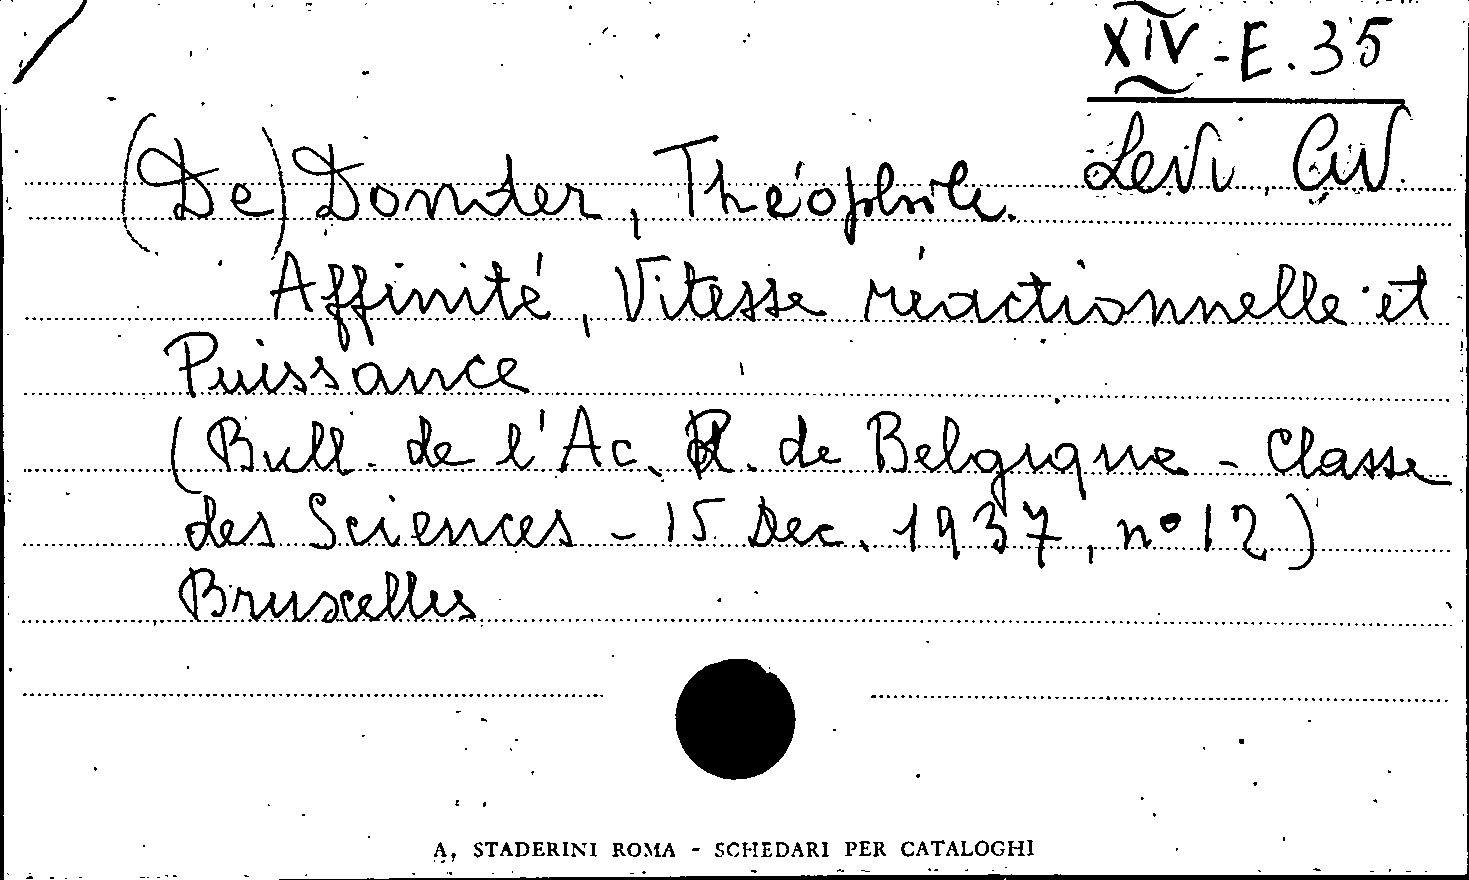 XIV - E. 35
Levi Civ.
(De) Donder, Théophile.
Affinité, Vitesse réactionnelle et
Puissance
(Bull. de l'Ac. R. de Belgique - Classe
des Sciences - 15 Dec. 1937, n° 12)
Bruxelles
A, STADERINI ROMA - SCHEDARI PER CATALOGHI